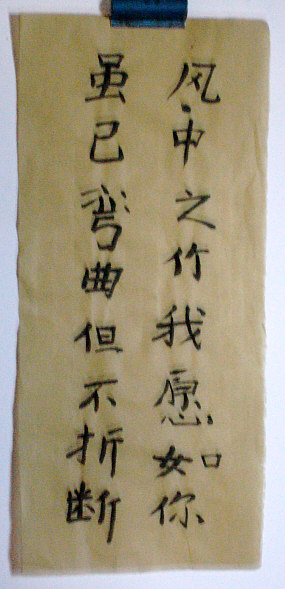 风中之竹我愿如你
虽已弯曲但不折断